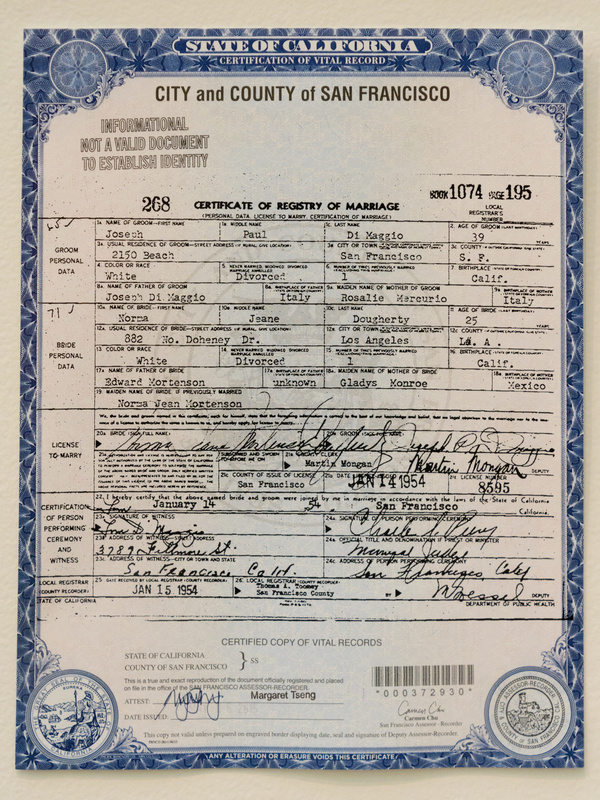 STATE OF CALIFORNIA
CERTIFICATION OF VITAL RECORD
CITY and COUNTY of SAN FRANCISCO
INFORMATIONAL
NOT A VALID DOCUMENT
TO ESTABLISH IDENTITY
BOOK 1074 PAGE 195
268 CERTIFICATE OF REGISTRY OF MARRIAGE
(PERSONAL DATA, LICENSE TO MARRY, CERTIFICATION OF MARRIAGE)
LOCAL REGISTRAR'S NUMBER
GROOM PERSONAL DATA
1a NAME OF GROOM—FIRST NAME 1b MIDDLE NAME 1c LAST NAME 2. AGE OF GROOM
Joseph Paul Di Maggio 39 YEARS
3a. USUAL RESIDENCE OF GROOM—STREET ADDRESS 3b CITY OR TOWN 3c COUNTY
2150 Beach San Francisco S. F.
4. COLOR OR RACE 5. NEVER MARRIED, WIDOWED, DIVORCED, MARRIAGE ANNULLED 7 BIRTHPLACE
White Divorced 1 Calif.
8a NAME OF FATHER OF GROOM 8b BIRTHPLACE OF FATHER 9a. MAIDEN NAME OF MOTHER OF GROOM 9b BIRTHPLACE OF MOTHER
Joseph Di Maggio Italy Rosalie Mercurio Italy
BRIDE PERSONAL DATA
10a NAME OF BRIDE—FIRST NAME 10b MIDDLE NAME 10c LAST NAME 11 AGE OF BRIDE
Norma Jeane Dougherty 25 YEARS
12a. USUAL RESIDENCE OF BRIDE—STREET ADDRESS 12b CITY OR TOWN 12c COUNTY
882 No. Doheney Dr. Los Angeles L. A.
13 COLOR OR RACE 14 NEVER MARRIED, WIDOWED, DIVORCED, MARRIAGE ANNULLED 16. BIRTHPLACE
White Divorced 1 Calif.
17a NAME OF FATHER OF BRIDE 17b BIRTHPLACE OF FATHER 18a. MAIDEN NAME OF MOTHER OF BRIDE 18b BIRTHPLACE OF MOTHER
Edward Mortenson unknown Gladys Monroe Mexico
19 MAIDEN NAME OF BRIDE IF PREVIOUSLY MARRIED
Norma Jean Mortenson
LICENSE TO-MARRY
20a BRIDE 20b GROOM
21b COUNTY CLERK
Martin Mongan Martin Mongan DEPUTY
21c COUNTY OF ISSUE OF LICENSE 21d DATE 21e LICENSE NUMBER
San Francisco JAN 14 1954 8595
CERTIFICATION OF PERSON PERFORMING CEREMONY AND WITNESS
22. I hereby certify that the above named bride and groom were joined by me in marriage in accordance with the laws of the State of California
on January 14 54 San Francisco California
23a SIGNATURE OF WITNESS 24a. SIGNATURE OF PERSON PERFORMING CEREMONY
23b ADDRESS OF WITNESS—STREET ADDRESS 24b. OFFICIAL TITLE AND DENOMINATION IF PRIEST OR MINISTER
Fillmore St. Municipal Judge
23c. ADDRESS OF WITNESS—CITY OR TOWN AND STATE 24c ADDRESS OF PERSON PERFORMING CEREMONY
San Francisco Calif. San Francisco, Calif
LOCAL REGISTRAR (COUNTY RECORDER)
25 DATE RECEIVED BY LOCAL REGISTRAR (COUNTY RECORDER) 26. LOCAL REGISTRAR (COUNTY RECORDER)
JAN 15 1954 Thomas A. Toomey
San Francisco County BY DEPUTY
STATE OF CALIFORNIA DEPARTMENT OF PUBLIC HEALTH
CERTIFIED COPY OF VITAL RECORDS
STATE OF CALIFORNIA
COUNTY OF SAN FRANCISCO } SS
This is a true and exact reproduction of the document officially registered and placed
on file in the office of the SAN FRANCISCO ASSESSOR-RECORDER.
*000372930*
ATTEST: Margaret Tseng
DATE ISSUED:
Carmen Chu
Carmen Chu
San Francisco Assessor - Recorder
This copy not valid unless prepared on engraved border displaying date, seal and signature of Deputy Assessor-Recorder.
ANY ALTERATION OR ERASURE VOIDS THIS CERTIFICATE